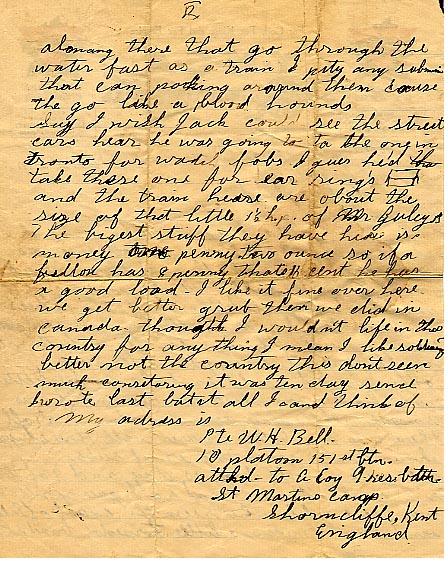 alonang there that go through the
water fast as a train I pity any submi
that can poking around them cause
the go like a blood hounds
Say I wish Jack could see the street
cars hear he was going to ta the one in
tronto for wach fobs I gues hed tha
take these one for ear ring's
and the train heare are about the
size of that little 1½ hp. of Mr Guleys
The bigest stuff they have here is
money penny two ounce so if a
fellon has 8 penny thats 1 lb he has
a good load - I like it fine over here
we get better grub then we did in
canada - though I wouldn't life in this
country for any thing I mean I like soldiering
better not the country this dont seen
much consitering it was ten day sence
I wrote last but at all I cand think of.
My adress is
Pte W. H. Bell.
10 platoon 151st btn.
attkd - to C Coy 9 res. battn.
St Martins camp
Shorncliffe, Kent
England